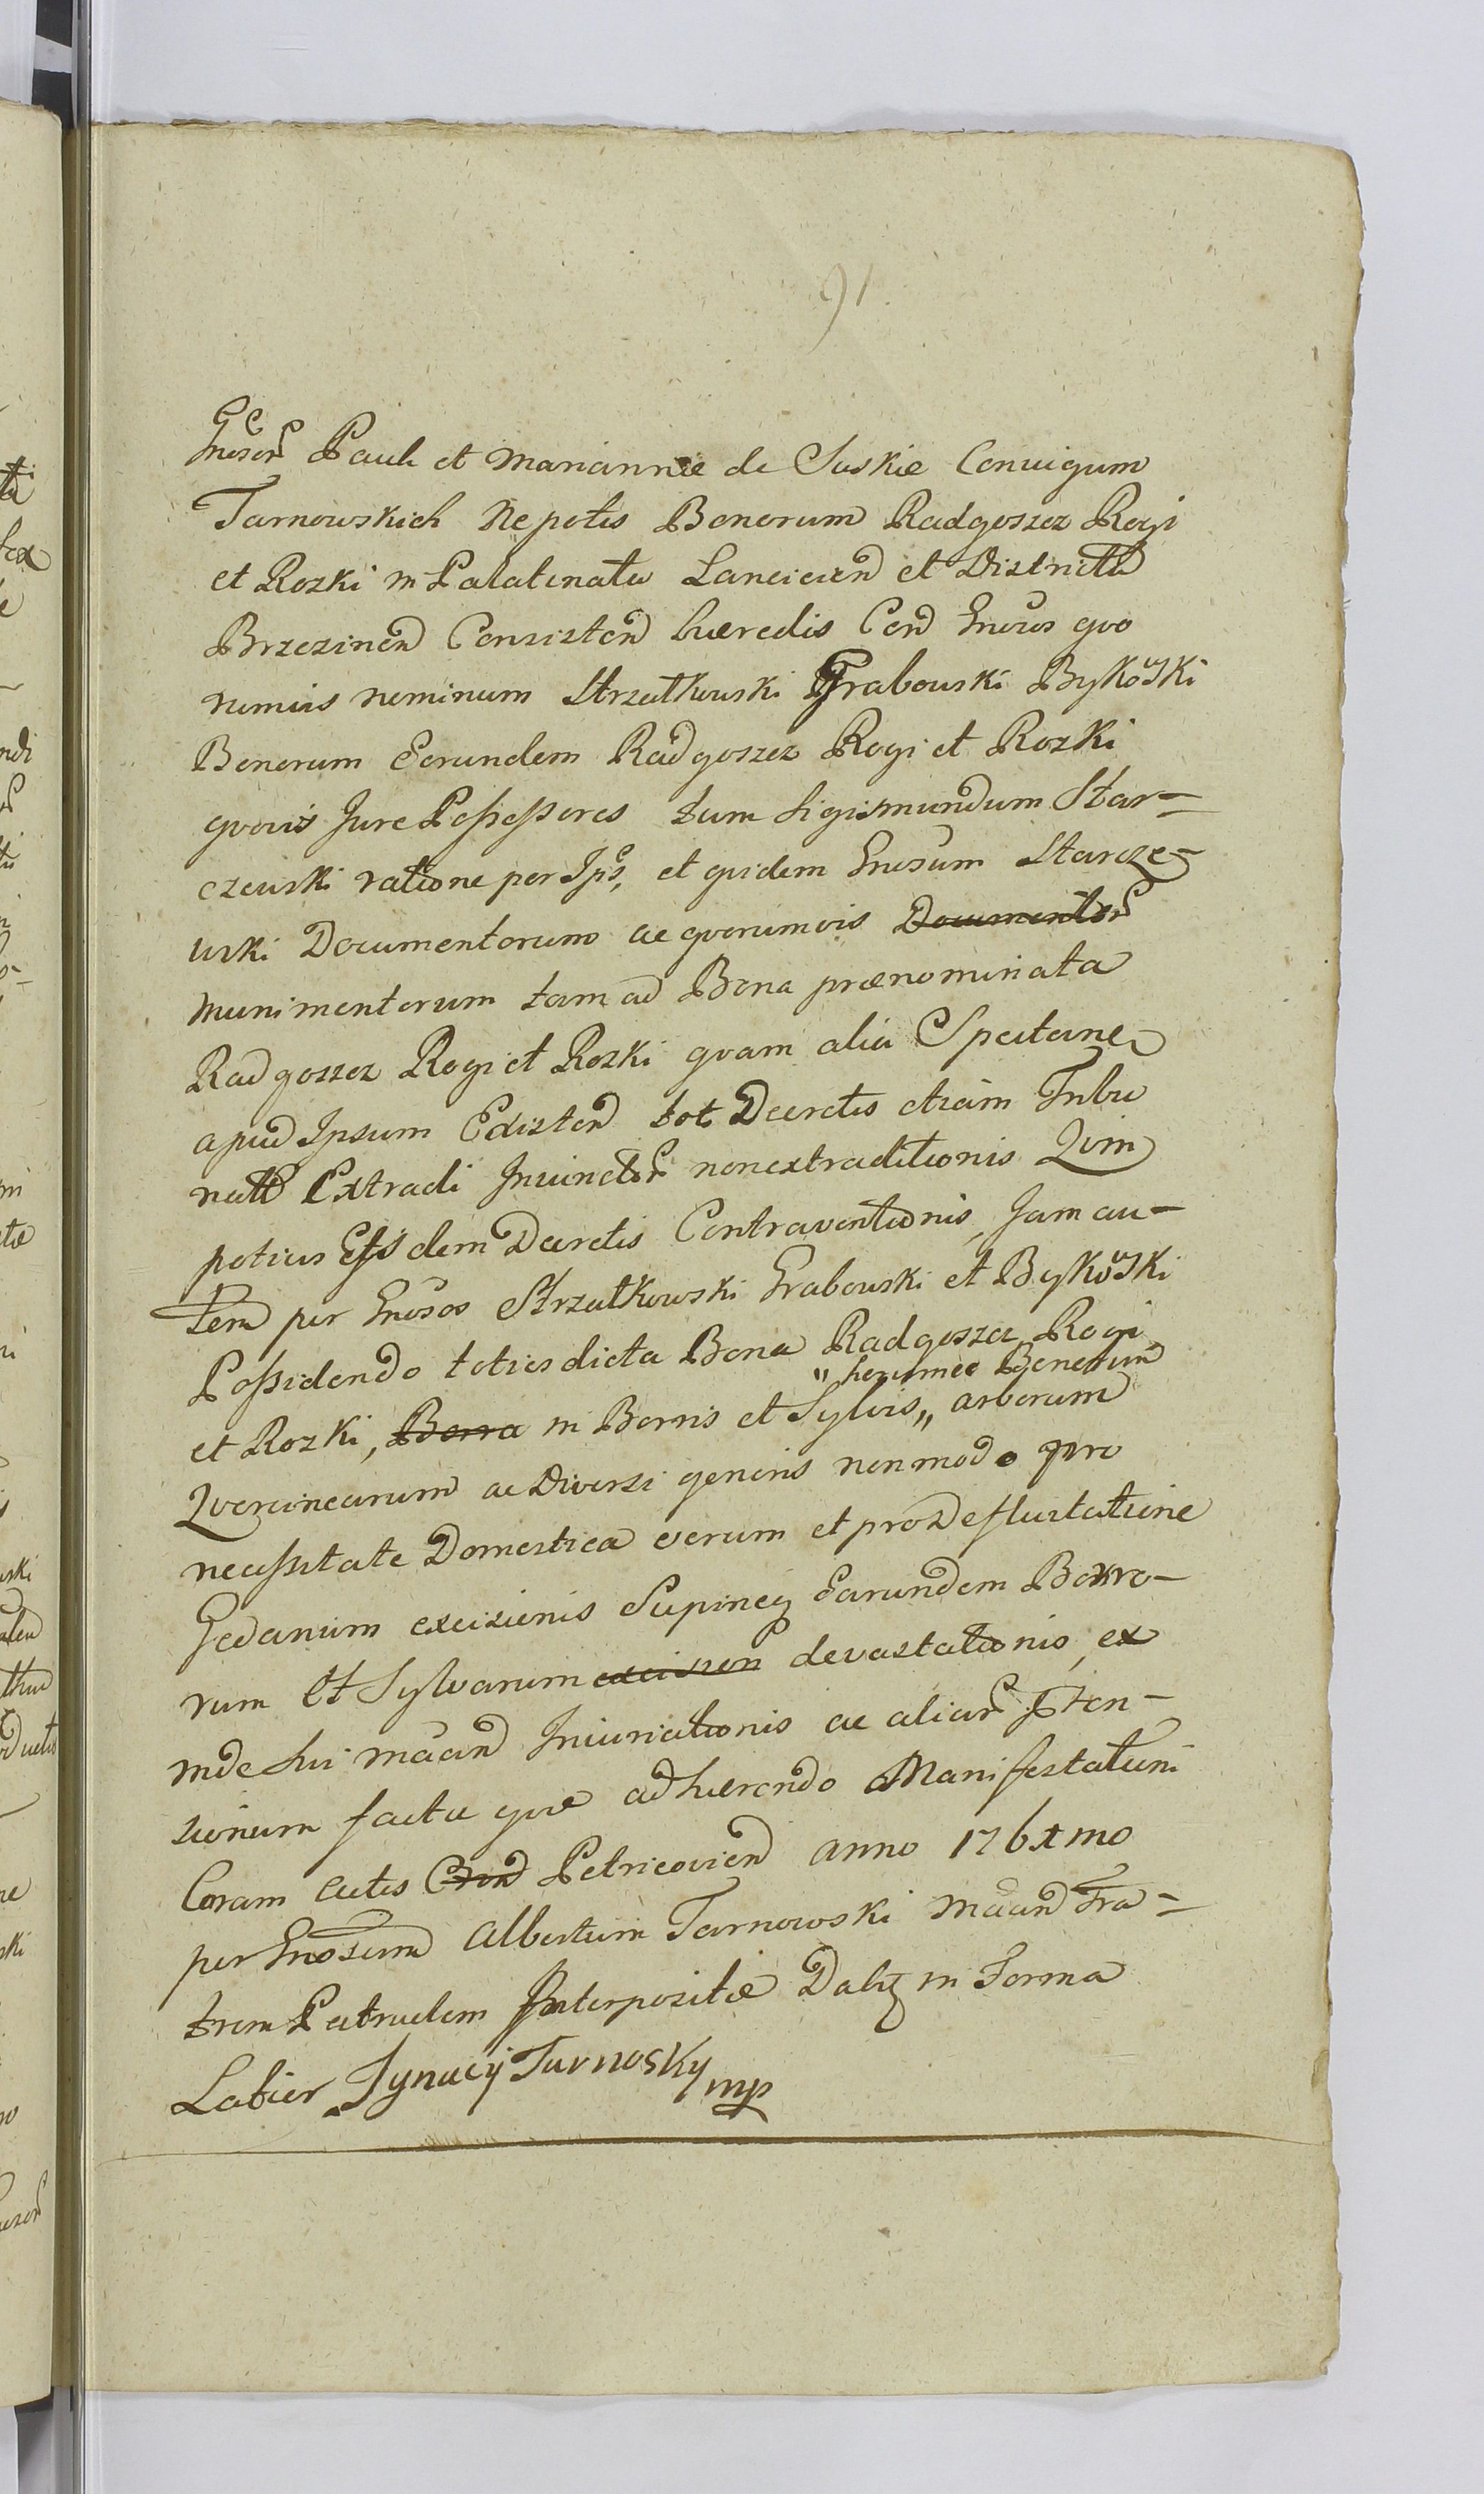 91.
Gnosor Pauli et Mariannæ de Suskie Coniugum
Tarnowskich Nepotis Bonorum Radgoszcz Rogi
et Rozki in Palatinatu Lancicien et Districtu
Brzezinen Consisten hæredis Con Gnosos quo
numvis nominum Strzałkowski Grabowski Bykowski
Bonorum Eorundem Radgoszcz Rogi et Rozki
quovis Jure Possessores tum Sigismundum Star-
czewski ratione per Ips, et quidem Gnosum Starcze-
wski Documentorum ac quorumvis Documentor
Munimentorum tam ad Bona prænominata
Radgoszcz Rogi et Rozki quam alia Spectane
apud Ipsum Existen tot Decretis etiam Tribu
natt Extradi Iniunctor nonextraditionis Quin
potius Eisdem Decretis Contraventionis, Jam au-
tem per Gnosos Strzałkowski Grabowski et Bykowski
Possidendo toties dicta Bona Radgoszcz Rogi
" horumce Bonorum
et Rozki, Borra in Borris et Sylvis „ arborum
Quercinearum ac Diversi generis non modo pro
necessitate Domestica verum et pro Defluitatione
Gedanum excisionis Supineq Earundem Borro-
rum Et Sylvarum excision devastationis, ex
inde sui Maan Iniuriationis ac aliar Pten-
sionum factæ quæ adhærendo Manifestationi
Coram actis Petricovien anno 176 mo
per Gnosum Albertum Tarnowski Maan Fra-
trem Patruelem Interpositæ Dalq in Forma
Latior Ignacij Tarnosky mp